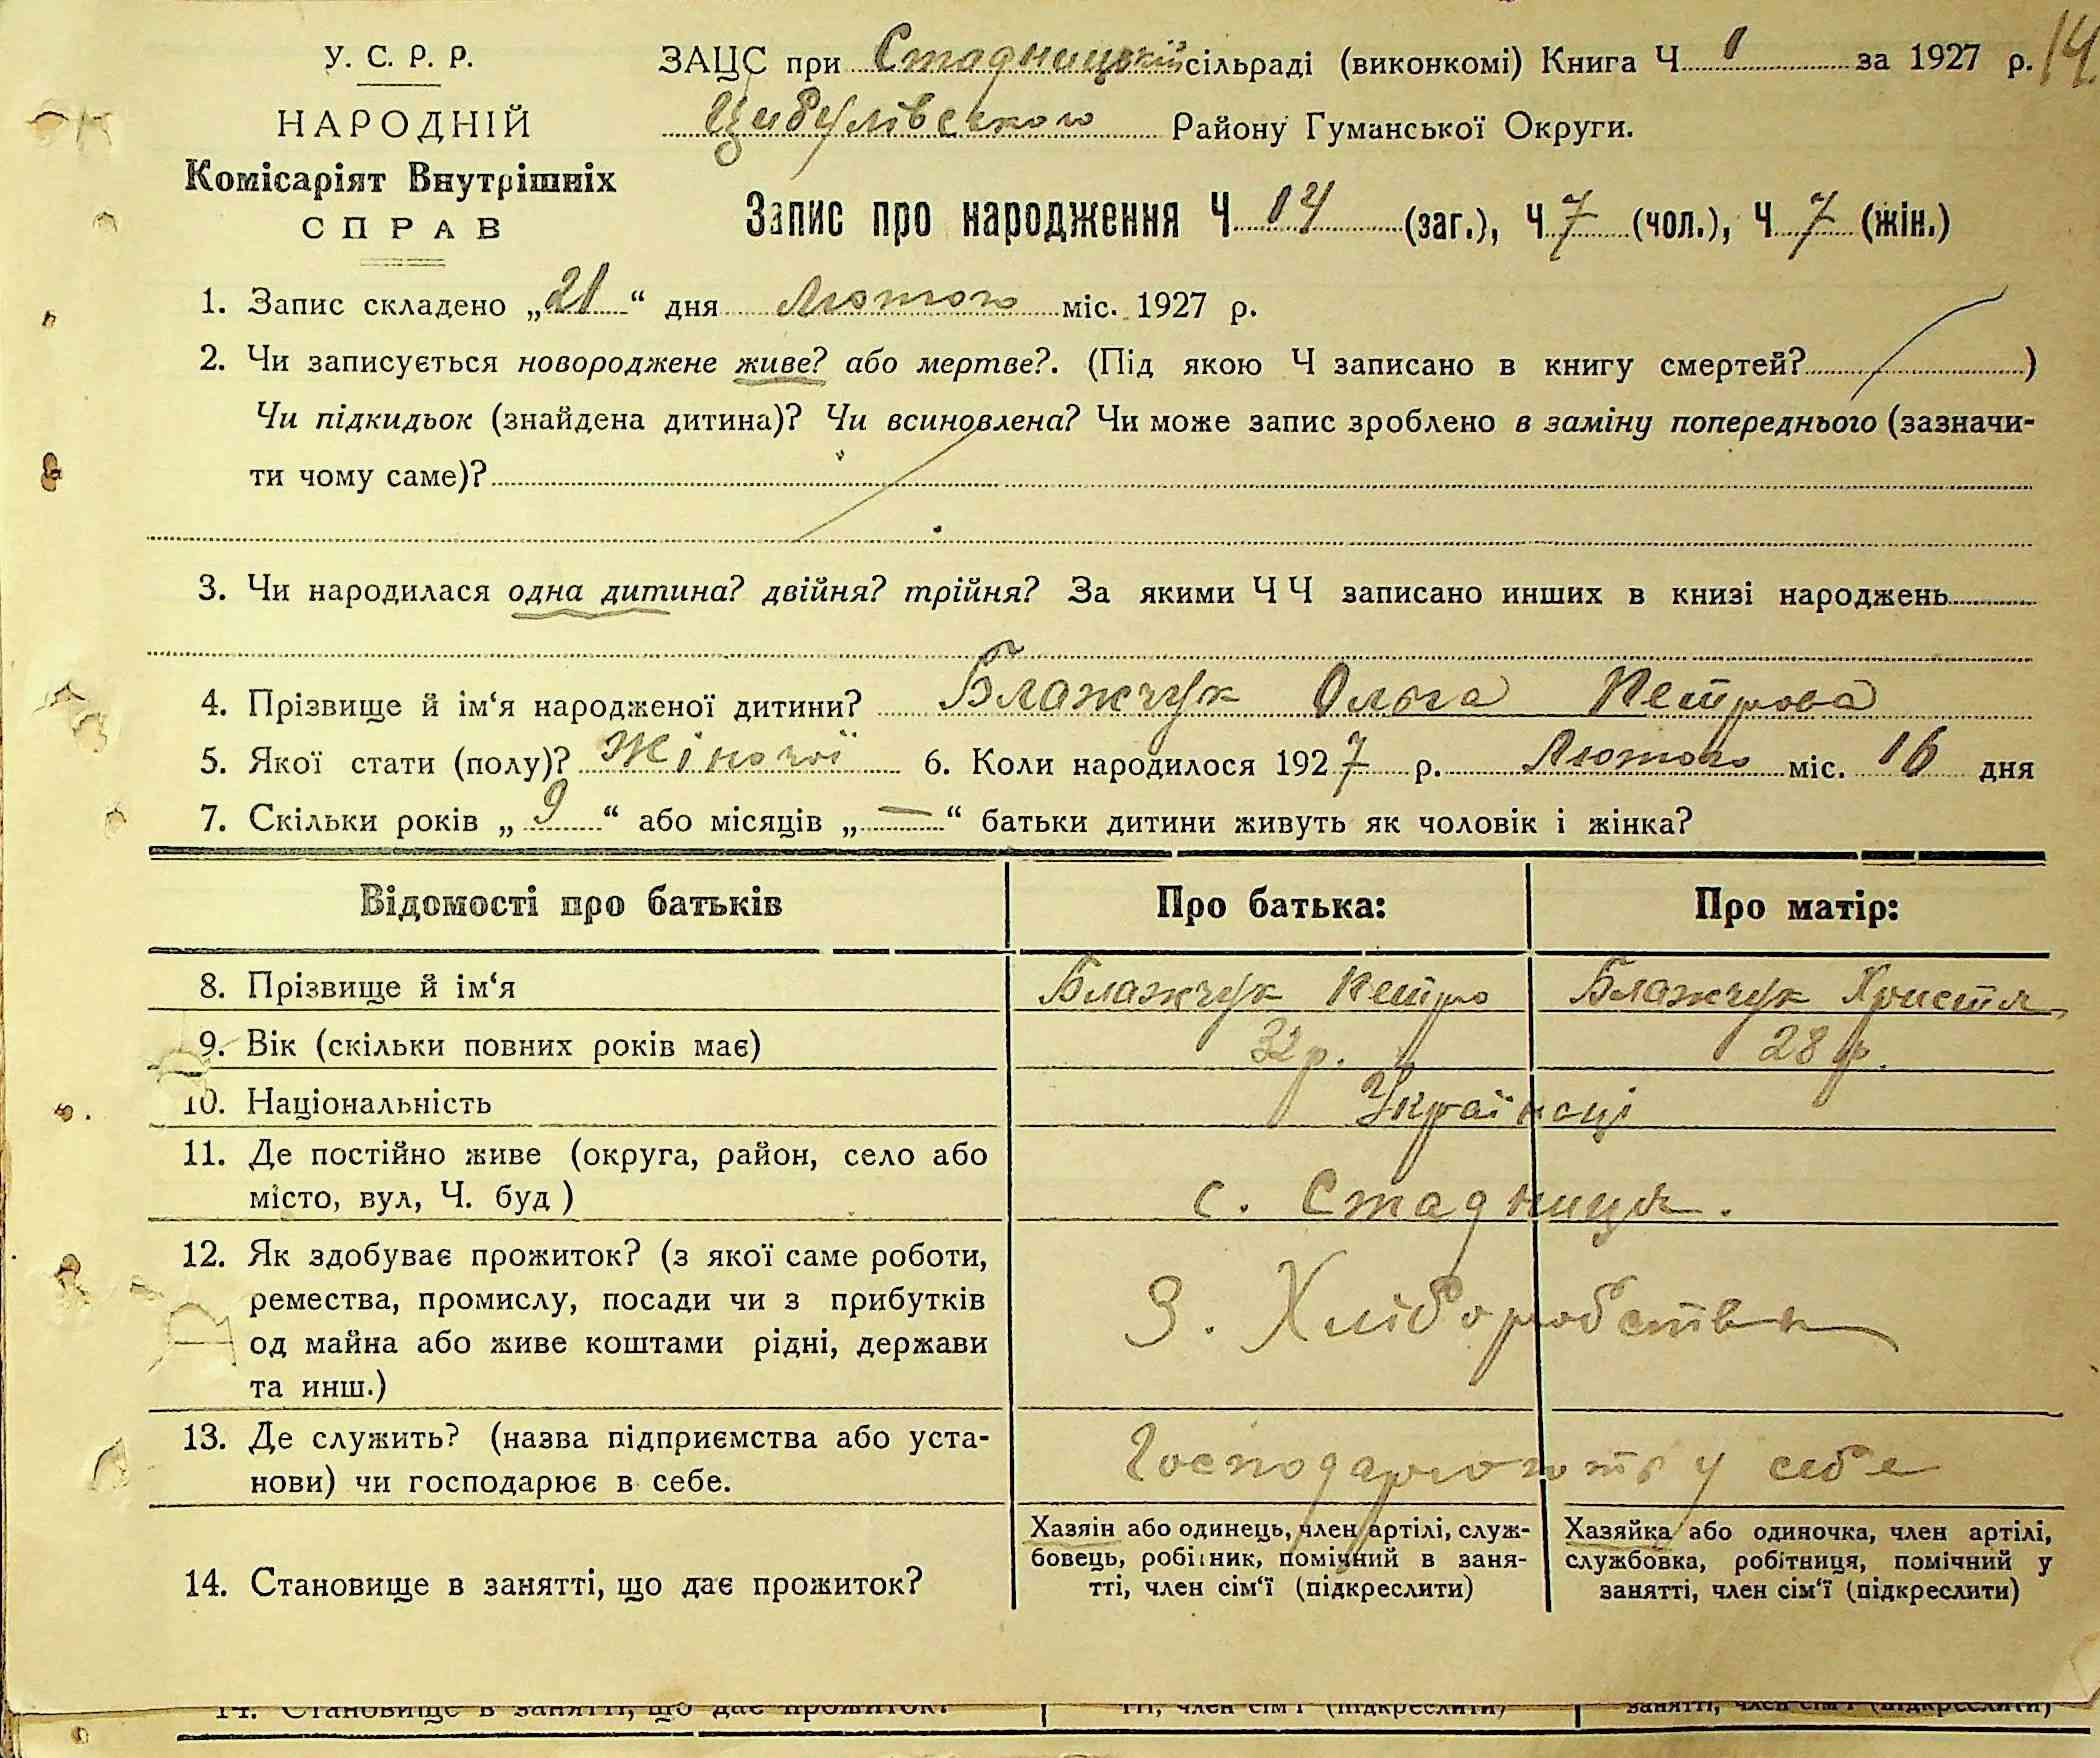 У. С. Р. Р.
НАРОДНІЙ
Комісаріят Внутрішніх
СПРАВ
ЗАЦС при Стадницькій сільраді (виконкомі) Книга Ч 1 за 1927 р. 14.
Цибулівського Району Гуманської Округи.
Запис про народження Ч 14 (заг.), Ч 7 (чол.), Ч 7 (жін.)
1. Запис складено „21“ дня Лютого міс. 1927 р.
2. Чи записується новороджене живе? або мертве?. (Під якою Ч записано в книгу смертей? )
Чи підкидьок (знайдена дитина)? Чи всиновлена? Чи може запис зроблено в заміну попереднього (зазначи-
ти чому саме)?
3. Чи народилася одна дитина? двійня? трійня? За якими ЧЧ записано инших в книзі народжень
4. Прізвище й ім‘я народженої дитини? Блажчук Ольга Петрова
5. Якої стати (полу)? Жіночої 6. Коли народилося 1927 р. Лютого міс. 16 дня
7. Скільки років „9“ або місяців „—“ батьки дитини живуть як чоловік і жінка?
Відомості про батьків Про батька: Про матір:
8. Прізвище й ім‘я Блажчук Петро Блажчук Христя
9. Вік (скільки повних років має) 32 р. 28 р.
10. Національність Українці
11. Де постійно живе (округа, район, село або
місто, вул, Ч. буд ) с. Стадниця.
12. Як здобуває прожиток? (з якої саме роботи,
ремества, промислу, посади чи з прибутків
од майна або живе коштами рідні, держави
та инш.)
З. Хліборобства
13. Де служить? (назва підприємства або уста-
нови) чи господарює в себе.
Господарюють у себе
14. Становище в занятті, що дає прожиток?
Хазяін або одинець, член артілі, служ-
бовець, робітник, помічний в заня-
тті, член сім‘ї (підкреслити)
Хазяйка або одиночка, член артілі,
службовка, робітниця, помічний у
занятті, член сім‘ї (підкреслити)
14. Становище в занятті, що дає прожиток? тті, член сім‘ї (підкреслити) занятті, член сім‘ї (підкреслити)